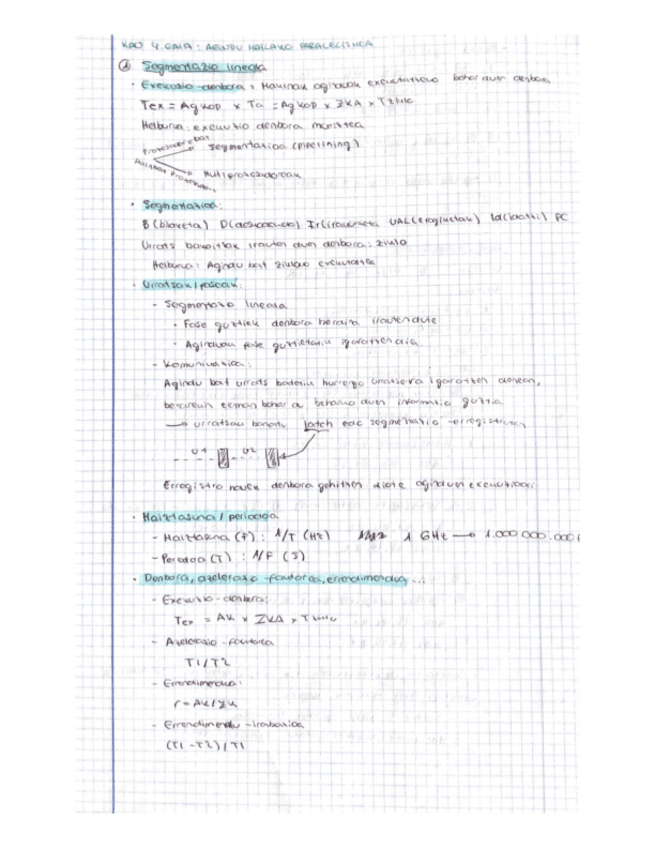 KAO 4. GAIA: AGINDU MAILAKO PARALELISMOA
① Segmentazio lineala
· Exekuzio-denbora: Makinak aginduak exekutatzeko behar duen denbora
Tex = Agkop x Ta = Agkop x ZKA x Tziklo
Helburua: exekuzio denbora murriztea
Prozesadore bat → Segmentazioa (pipelining)
Hainbat prozesadore → Multiprozesadoreak
· Segmentazioa:
B (bilaketa) D (deskodeketa) Ir (irakurketa) UAL (eragiketak) Id (idatzi) PC
Urrats bakoitzak irauten duen denbora: ziklo
Helburua: Agindu bat zikloko exekutatzea
· Urratsak / faseak:
- Segmentazio lineala
· Fase guztiek denbora berdina irauten dute
· Aginduak fase guztietatik igarotzen dira
- Komunikazioa:
Agindu bat urrats batetik hurrengo urratsera igarotzen denean,
berarekin eraman behar du beharko duen informazio guztia
→ urratsak banatu latch edo segmentazio-erregistroetan
U1 U2
Erregistro hauek denbora gehitzen diote aginduen exekuzioari
· Maiztasuna / periodoa
- Maiztasuna (F): 1/T (Hz) 1 GHz → 1.000.000.000
- Periodoa (T): 1/F (s)
· Denbora, azelerazio-faktorea, errendimendua ...
- Exekuzio-denbora:
Tex = AK x ZKA x Tziklo
- Azelerazio-faktorea
T1/T2
- Errendimendua:
r = AK/ZK
- Errendimendu-irabazia
(T1 - T2) / T1